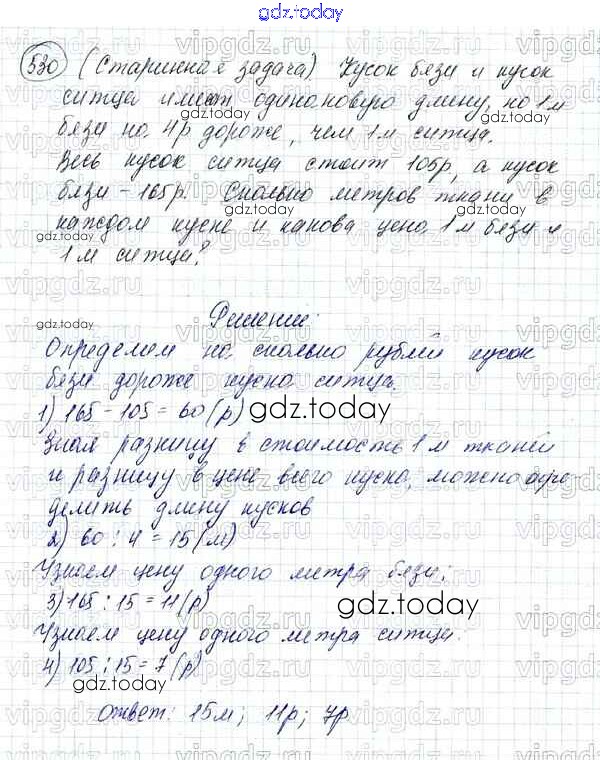 gdz.today
530 (Старинная задача) Кусок бязи и кусок
ситца имеют одинаковую длину, но 1 м
бязи на 4р дороже, чем 1 м ситца.
Весь кусок ситца стоит 105р, а кусок
бязи - 165р. Сколько метров ткани в
каждом куске и какова цена 1 м бязи и
1 м ситца?
Решение:
Определим на сколько рублей кусок
бязи дороже куска ситца.
1) 165 - 105 = 60 (р) gdz.today
Зная разницу в стоимость 1 м тканей
и разницу в цене всего куска, можно опре-
делить длину кусков
2) 60 : 4 = 15 (м)
Узнаем цену одного метра бязи:
3) 165 : 15 = 11 (р) gdz.today
Узнаем цену одного метра ситца:
4) 105 : 15 = 7 (р)
gdz.today
Ответ: 15м; 11р; 7р